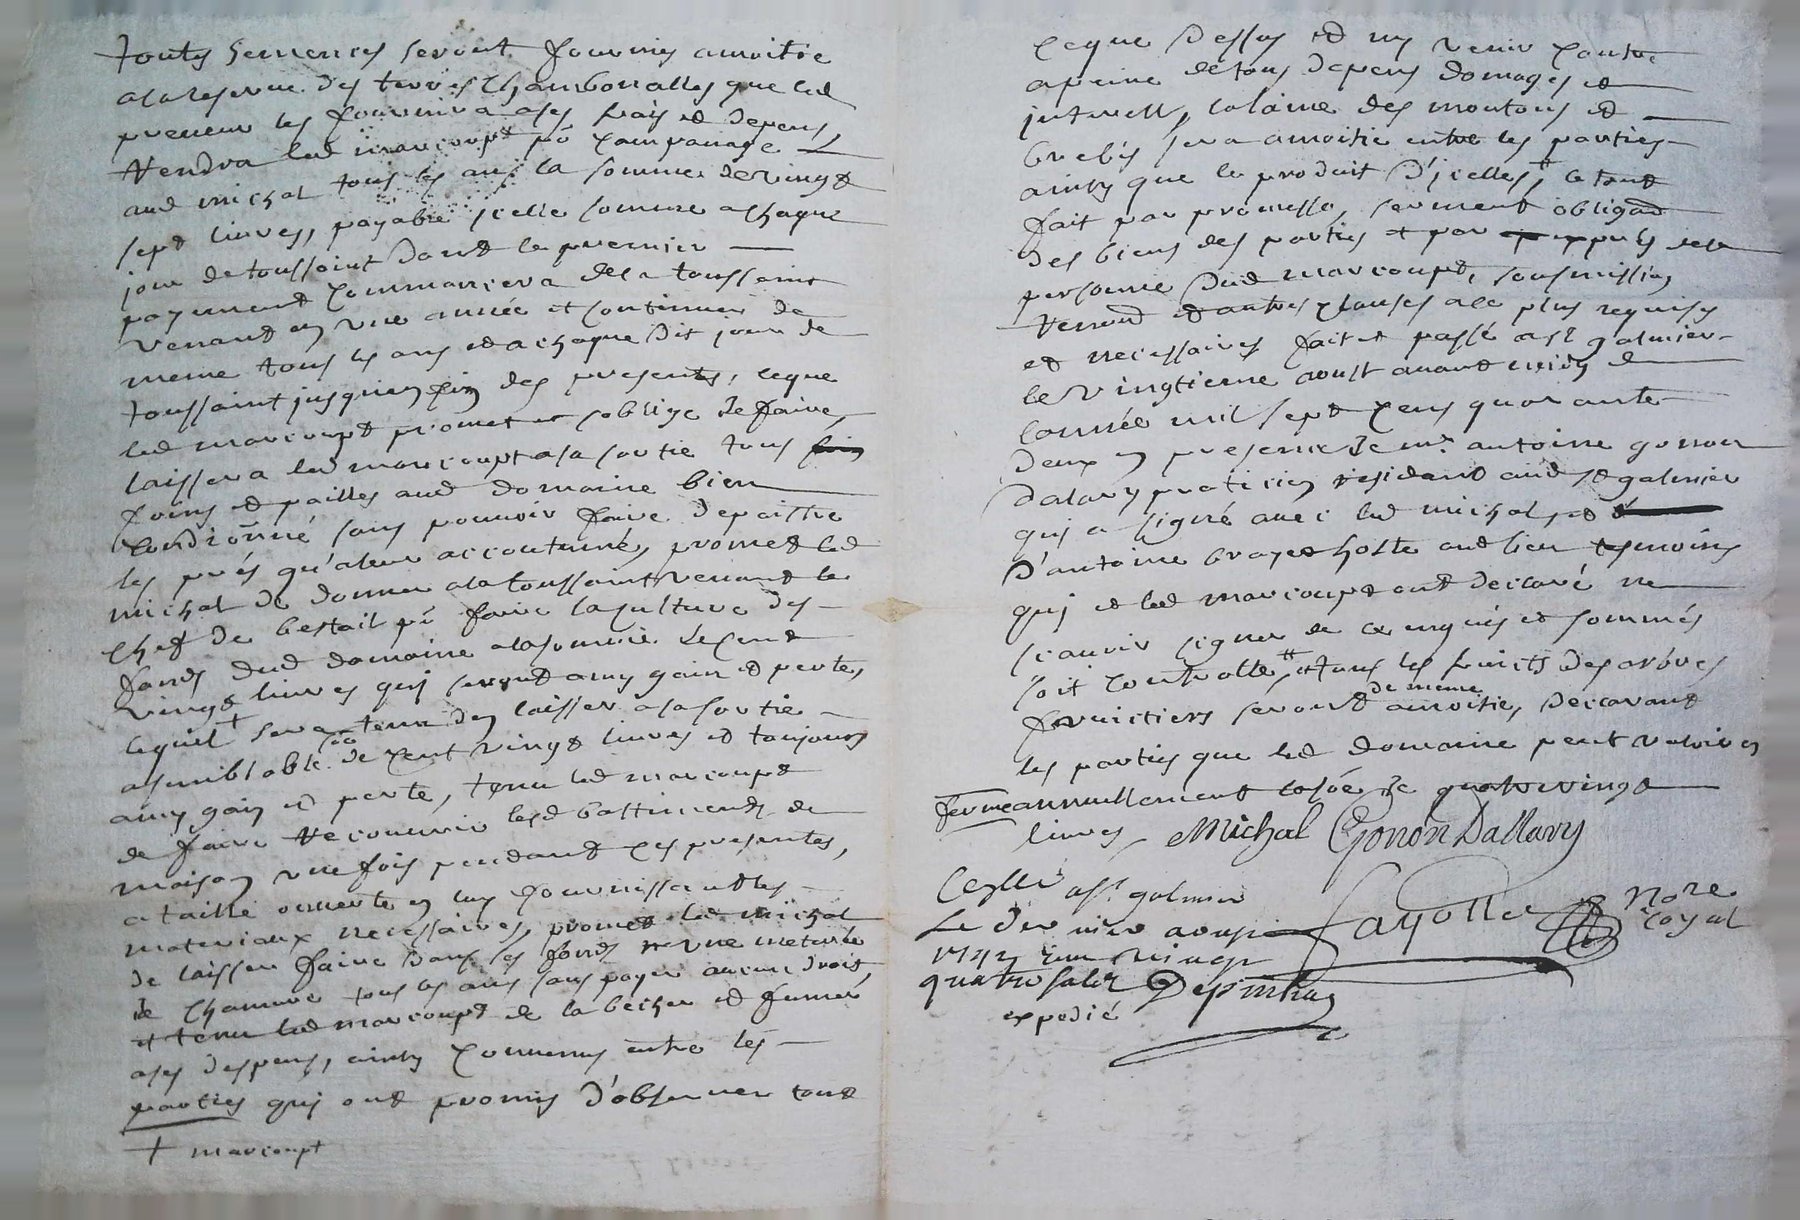 toutes semences seront fournies amoitié
alareserve des terres Chambonalles que led
preneur les fournira ases frais et depens,
Rendra led marcoupt po campanage
aud michal tous les ans la somme de vingt
sept livres, payable jcelle somme achaque
jour de toussaint dont le premier
payement commancera dela toussaint
venant en une année et continuer de
meme tous les ans et achaque dit jour de
toussaint jusquien fin des presentes, ceque
led marcoupt promet et soblige de faire,
laissera led marcoupt asa sortie tous
foins et pailles aud domaine bien
conditionné sans pouvoir faire depaistre
les prés qu'aleur accoutumé, promet led
michal de donner ala toussaint venant le
chet de bestail pr faire la culture des
fonds dud domaine alasomme de cent
vingt livres qui seront amy gain et perte,
lequel + sera tenu den laisser asa sortie
asemblable de cent vingt livres et toujours
amy gain et perte, tenu led marcoupt
de faire Recouvrir lesd battiments de
maison une fois pendant ces presentes,
a taille ouverte en luy fournissant les
materiaux necessaires, promet led michal
de laisser faire dans les fonds une meturée
de chanvre tous les ans sans payer aucun droit,
et tenu led marcoupt de la becher et fumer
ases despens, ainsy convenus entre les
parties qui ont promis d'observer tout
+ marcoupt
ceque dessus et ny venir contre
apeine de tous depens domages et
jnterests, la laine des moutons et
brebis sera amoitié entre les parties
ainsy que le produit d'jcelles, # le tout
fait par promesse, serment obligaon
des biens des parties et par de la
personne dud marcoupt, soumission
Renond et autres clauses ala plus requises
et necessaires fait et passé a st galmier
le vingtieme aoust avant midy
lannée mil sept cens quarante
deux en presence de mr antoine gonon
dalary praticien residant aud st galmier
qui a signé avec led michal, et
d'antoine hoste aud lieu tesmoins
qui et led marcoupt ont declaré ne
scavoir signer de ce enquis et sommés
soit controllé, # tous les fruits des arbres
fruictiers seront de meme amoitié, declarant
les parties que led domaine peut valoir en
ferme annuellement de quatre vingt
livres, Michal Gonon Dallary
a st galmier
Le aoust Fayolle Nore
royal
vingt
quatre solz
expedié